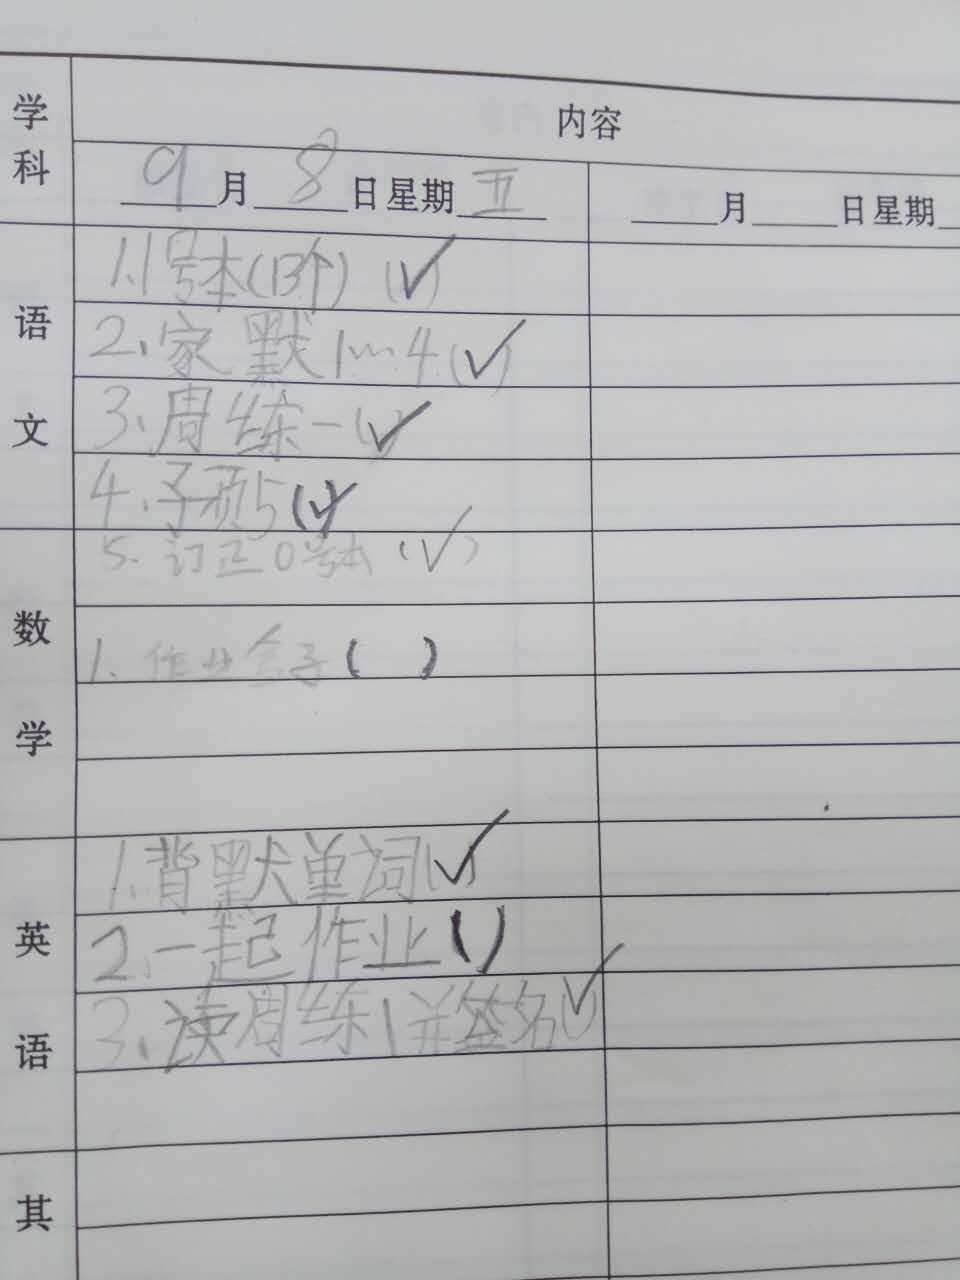 学科 内容
9月8日星期五 月 日星期
语文
1.1号本(13个) (✓)
2.家默1…4(✓)
3.周练一(✓)
4.子项5(✓)
5.订正0号本(✓)
数学
1.作业盒子( )
英语
1.背默单词(✓)
2.一起作业()
3.读周练1并签名(✓)
其